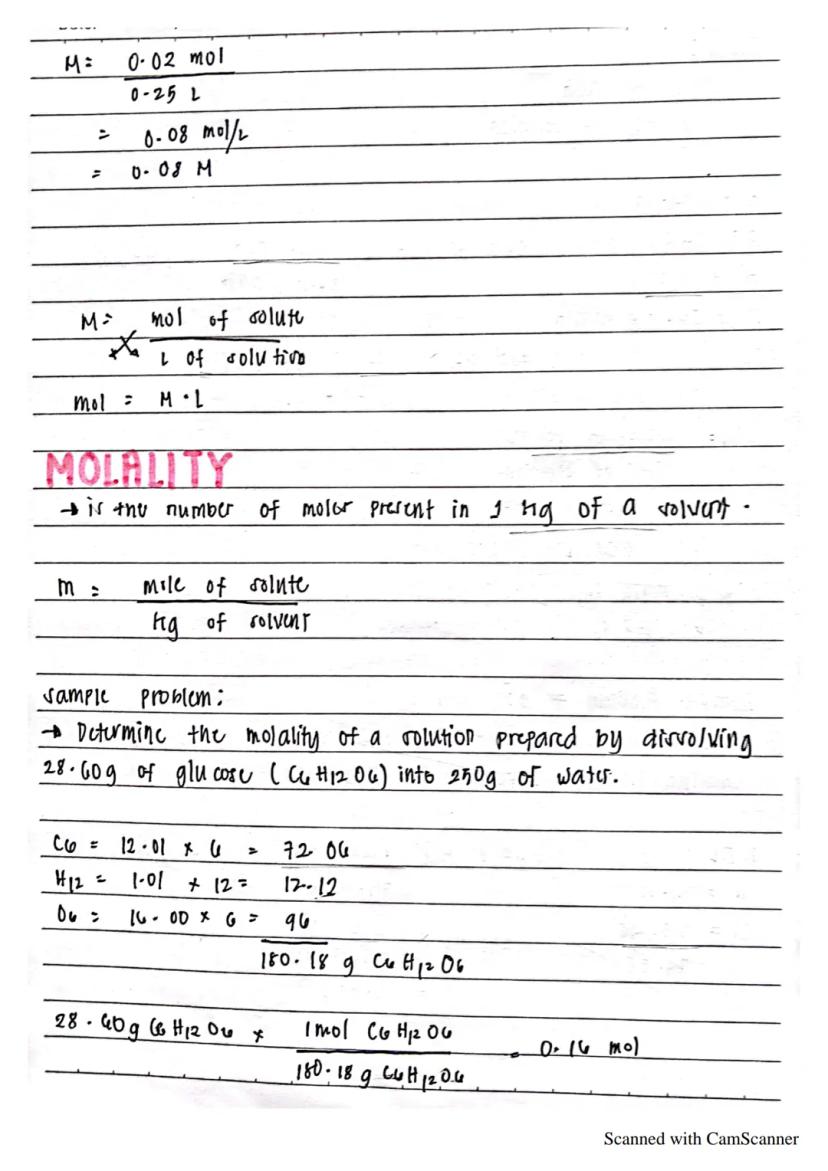 M = 0.02 mol
0.25 L
= 0.08 mol/L
= 0.08 M
M = mol of solute
L of solution
mol = M · L
MOLALITY
→ is the number of moles present in 1 kg of a solvent.
m = mole of solute
kg of solvent
sample problem:
→ Determine the molality of a solution prepared by dissolving
28.60g of glucose (C6H12O6) into 250g of water.
C6 = 12.01 x 6 = 72.06
H12 = 1.01 x 12 = 12.12
O6 = 16.00 x 6 = 96
180.18 g C6H12O6
28.60g C6H12O6 x 1mol C6H12O6 = 0.16 mol
180.18 g C6H12O6
Scanned with CamScanner